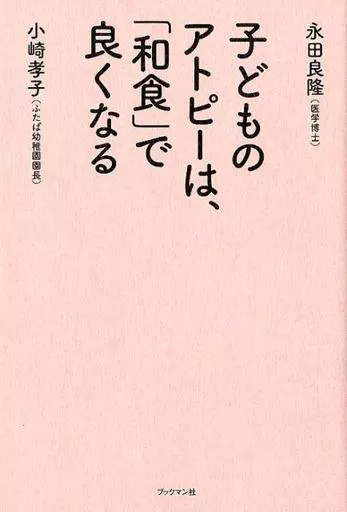 永田良隆(医学博士)
子どもの
アトピーは、
「和食」で
良くなる
小崎孝子(ふたば幼稚園園長)
ブックマン社